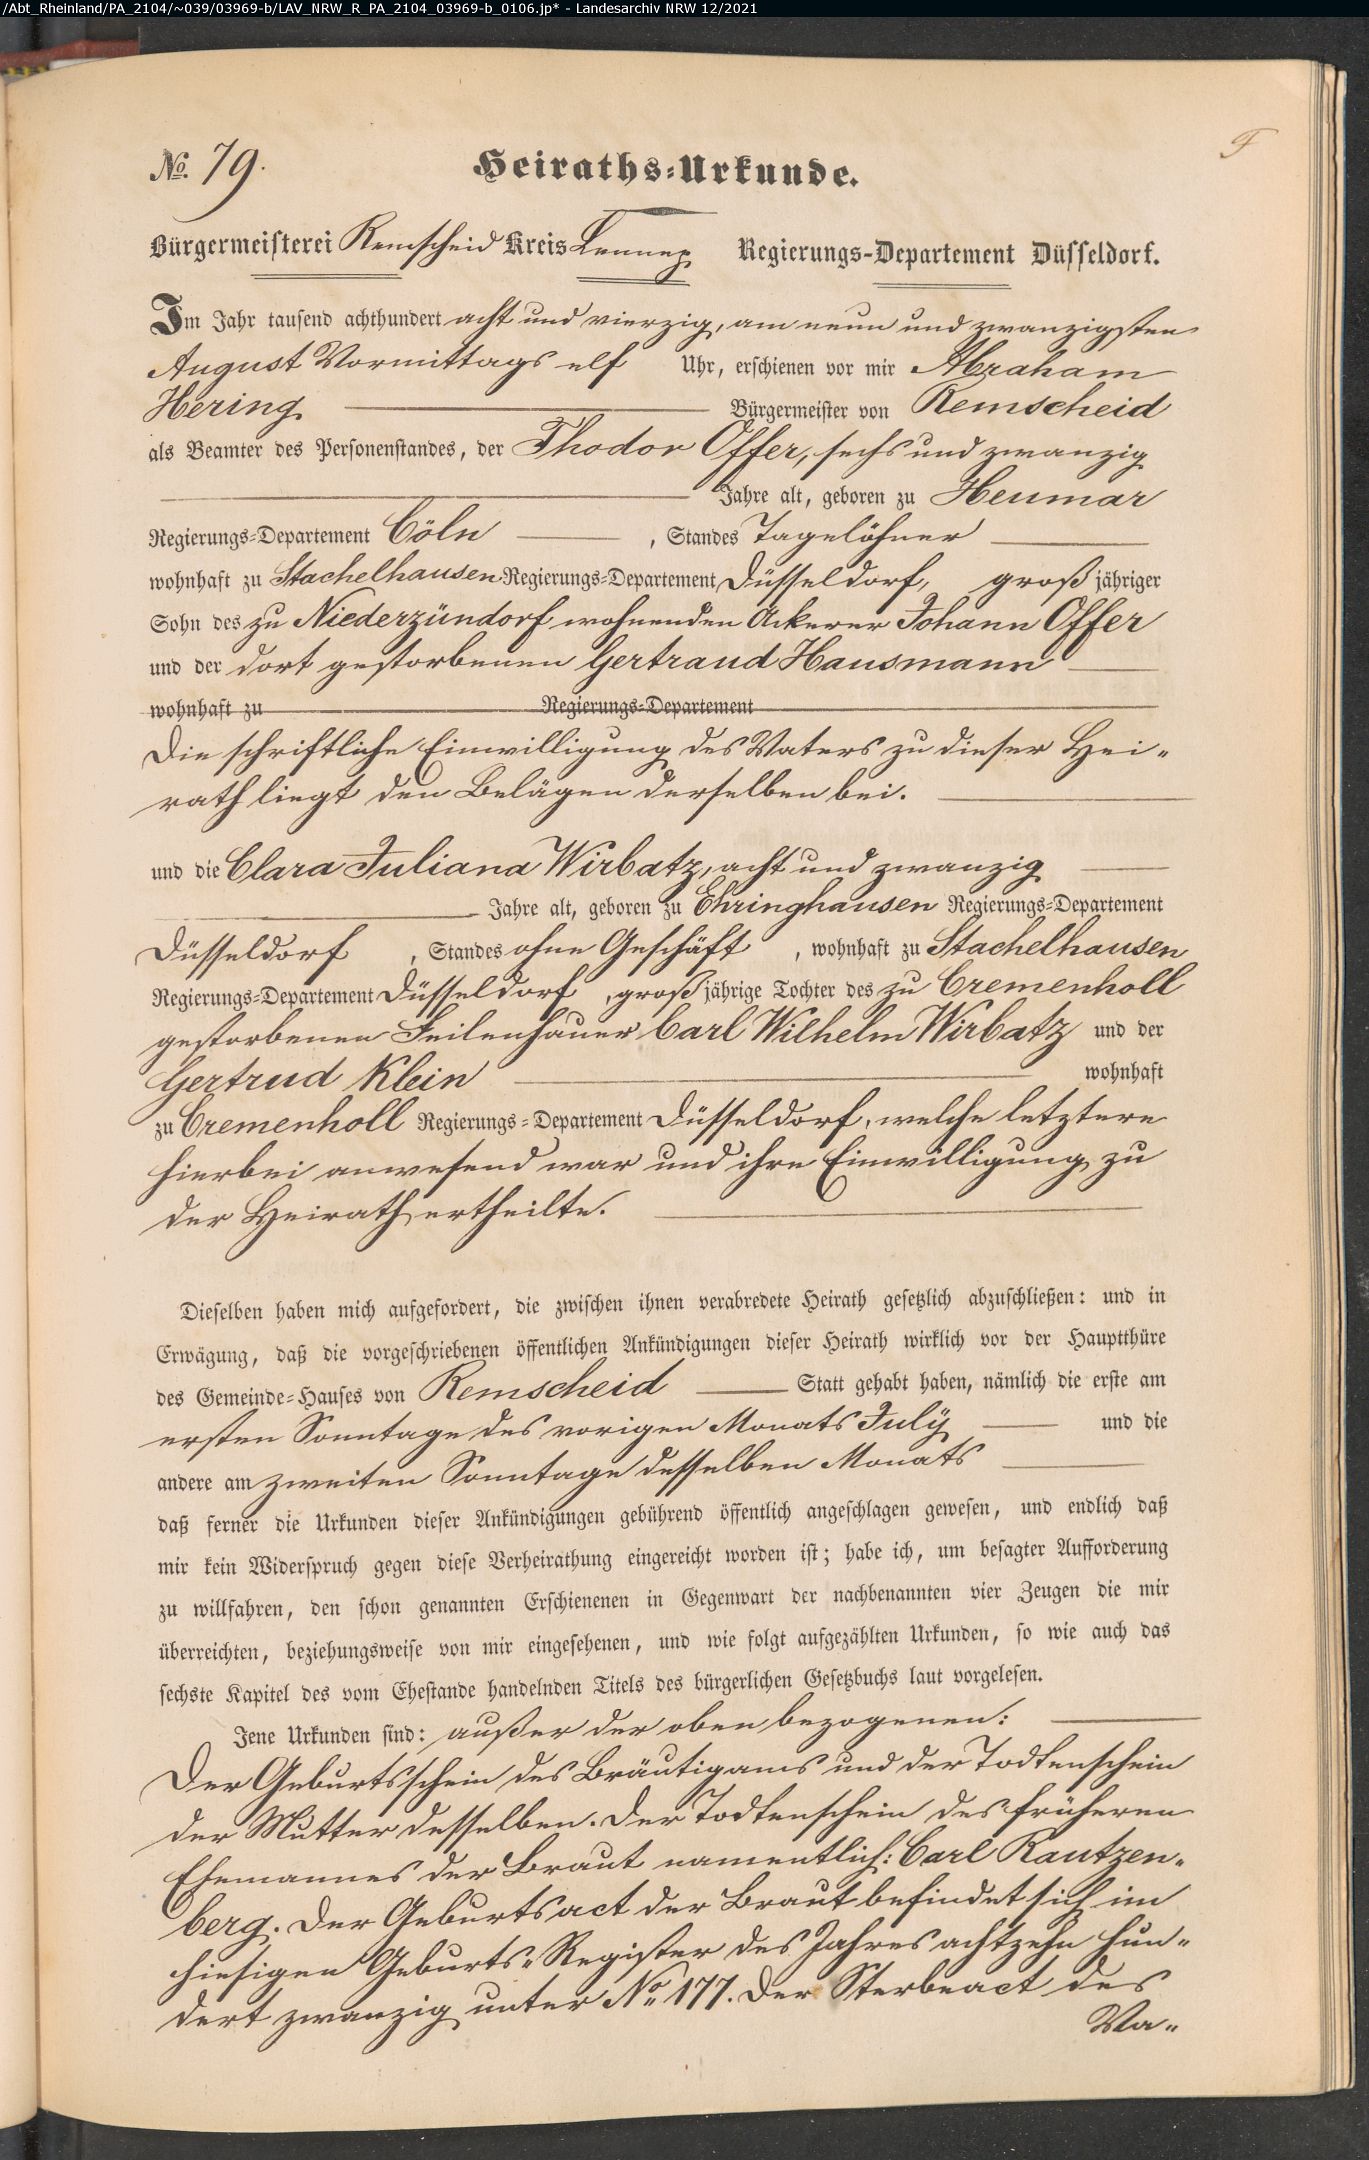 /Abt_Rheinland/PA_2104/~039/03969-b/LAV_NRW_R_PA_2104_03969-b_0106.jp* - Landesarchiv NRW 12/2021
F
No. 79.
Heiraths-Urkunde.
Bürgermeisterei Remscheid Kreis Lennep Regierungs-Departement Düsseldorf.
Im Jahr tausend achthundert acht und vierzig, am neun und zwanzigsten
August Vormittags elf Uhr, erschienen vor mir Abraham
Hering Bürgermeister von Remscheid
als Beamter des Personenstandes, der Thodor Offer, sechs und zwanzig
Jahre alt, geboren zu Heumar
Regierungs-Departement Cöln, Standes Tagelöhner
wohnhaft zu Stachelhausen Regierungs-Departement Düsseldorf, großjähriger
Sohn des zu Niederzündorf wohnenden Ackerer Johann Offer
und der dort gestorbenen Gertraud Hausmann
wohnhaft zu Regierungs-Departement
Die schriftliche Einwilligung des Vaters zu dieser Hei-
rath liegt den Belägen derselben bei.
und die Clara Juliana Wirbatz, acht und zwanzig
Jahre alt, geboren zu Ehringhausen Regierungs-Departement
Düsseldorf, Standes ohne Geschäft, wohnhaft zu Stachelhausen
Regierungs-Departement Düsseldorf, großjährige Tochter des zu Cremenholl
gestorbenen Feilenhauer Carl Wilhelm Wirbatz und der
Gertrud Klein wohnhaft
zu Cremenholl Regierungs-Departement Düsseldorf, welche letztere
hierbei anwesend war und ihre Einwilligung zu
der Heirath ertheilte.
Dieselben haben mich aufgefordert, die zwischen ihnen verabredete Heirath gesetzlich abzuschließen: und in
Erwägung, daß die vorgeschriebenen öffentlichen Ankündigungen dieser Heirath wirklich vor der Hauptthüre
des Gemeinde-Hauses von Remscheid Statt gehabt haben, nämlich die erste am
ersten Sonntage des vorigen Monats July und die
andere am zweiten Sonntage desselben Monats
daß ferner die Urkunden dieser Ankündigungen gebührend öffentlich angeschlagen gewesen, und endlich daß
mir kein Widerspruch gegen diese Verheirathung eingereicht worden ist; habe ich, um besagter Aufforderung
zu willfahren, den schon genannten Erschienenen in Gegenwart der nachbenannten vier Zeugen die mir
überreichten, beziehungsweise von mir eingesehenen, und wie folgt aufgezählten Urkunden, so wie auch das
sechste Kapitel des vom Ehestande handelnden Titels des bürgerlichen Gesetzbuchs laut vorgelesen.
Jene Urkunden sind: außer der oben bezogenen:
Der Geburtsschein des Bräutigams und der Todtenschein
der Mutter desselben. Der Todtenschein des früheren
Ehemannes der Braut namentlich: Carl Rautzen-
berg. Der Geburtsact der Braut befindet sich im
hiesigen Geburts-Register des Jahres achtzehn hun-
dert zwanzig unter No 177. Der Sterbeact des
Va-